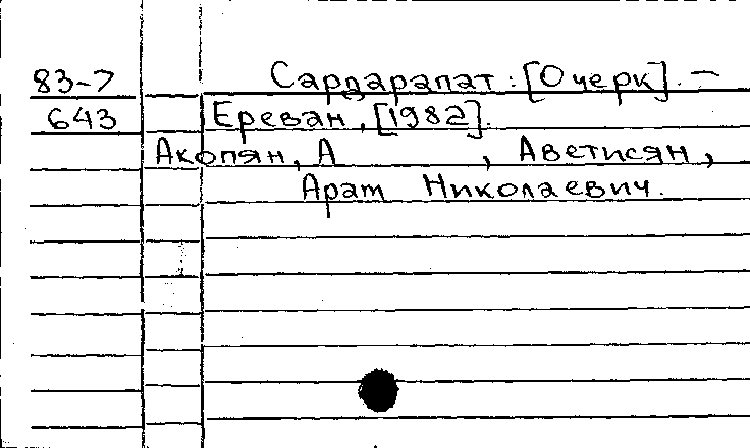 83-7 Сардарапат : [Очерк]. —
643 Ереван, [1982].
Акопян, А , Аветисян,
Арат Николаевич.